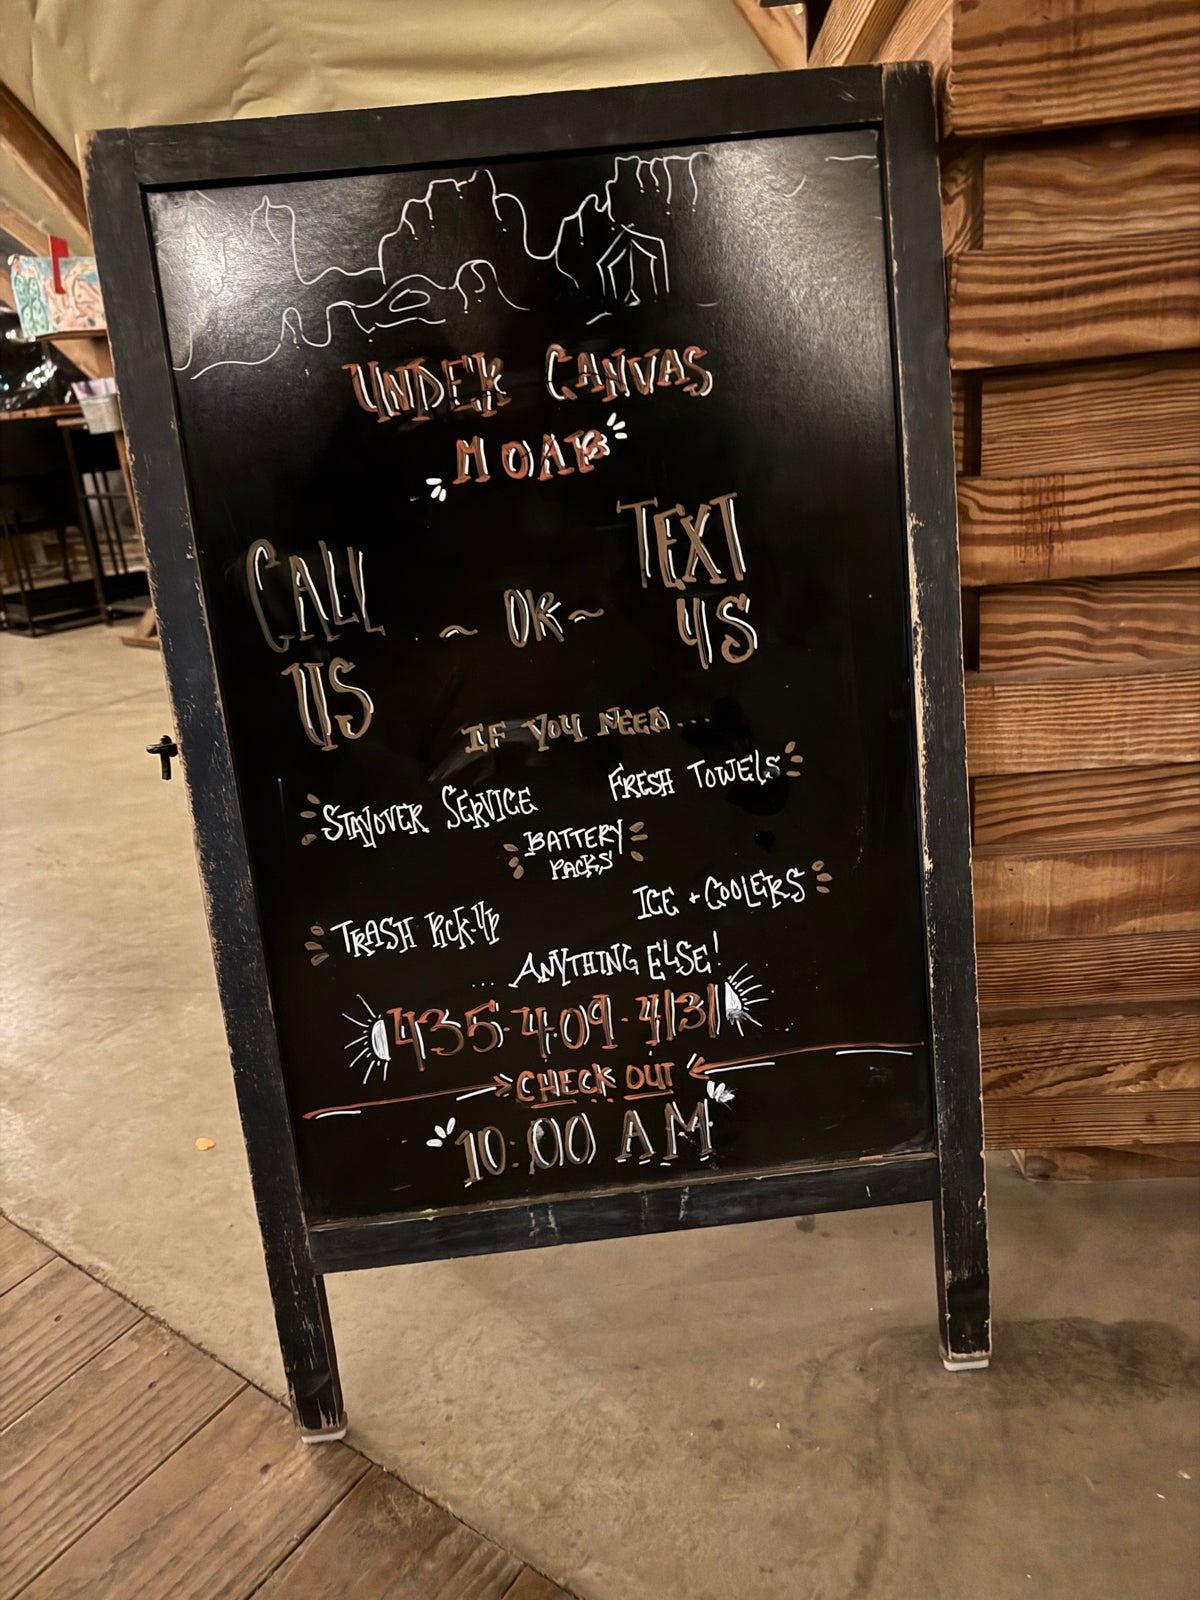 UNDER CANVAS
MOAB
CALL US
~ OR ~
TEXT US
IF YOU NEED...
STAYOVER SERVICE
FRESH TOWELS
BATTERY PACKS
TRASH PICK-UP
ICE + COOLERS
... ANYTHING ELSE!
435-409-4131
CHECK OUT
10:00 AM